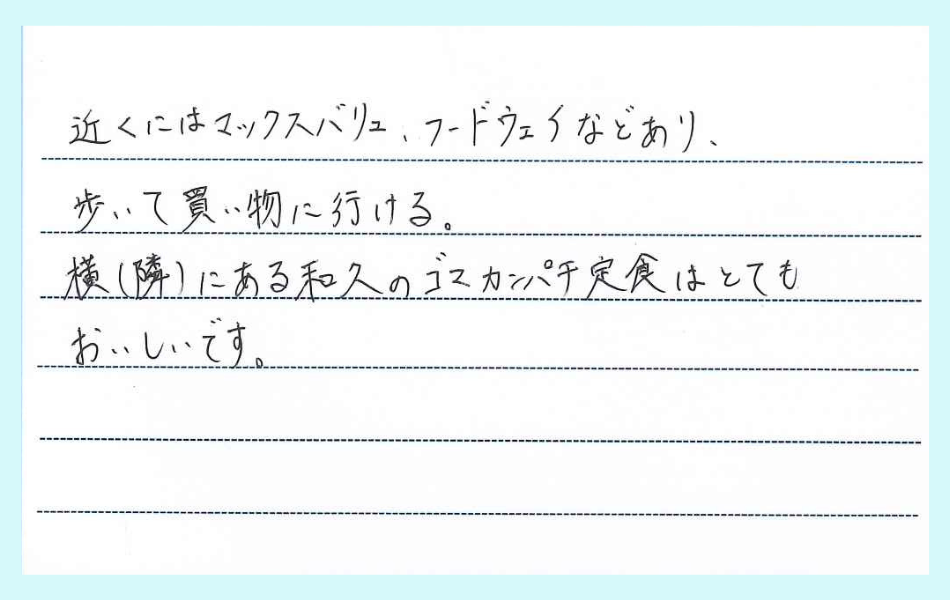 近くにはマックスバリュ、フードウェイなどあり、
歩いて買い物に行ける。
横(隣)にある和久のゴマカンパチ定食はとても
おいしいです。